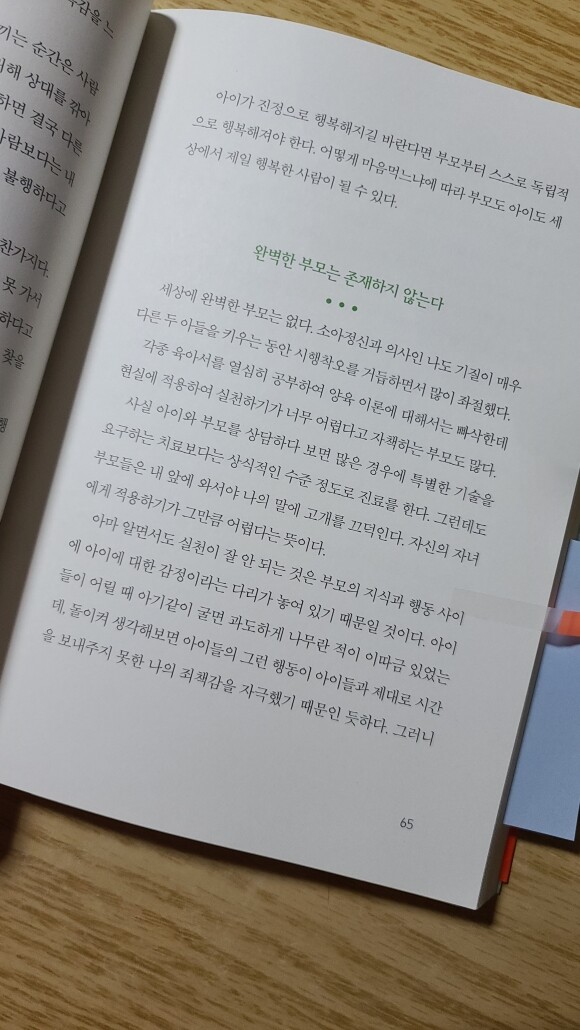 주감을 느
끼는 순간은 사람
위해 상대를 깎아
하면 결국 다른
사람보다는 내
불행하다고
찬가지다.
못 가서
하다고
찾을
행
아이가 진정으로 행복해지길 바란다면 부모부터 스스로 독립적
으로 행복해져야 한다. 어떻게 마음먹느냐에 따라 부모도 아이도 세
상에서 제일 행복한 사람이 될 수 있다.
완벽한 부모는 존재하지 않는다
세상에 완벽한 부모는 없다. 소아정신과 의사인 나도 기질이 매우
다른 두 아들을 키우는 동안 시행착오를 거듭하면서 많이 좌절했다.
각종 육아서를 열심히 공부하여 양육 이론에 대해서는 빠삭한데
현실에 적용하여 실천하기가 너무 어렵다고 자책하는 부모도 많다.
사실 아이와 부모를 상담하다 보면 많은 경우에 특별한 기술을
요구하는 치료보다는 상식적인 수준 정도로 진료를 한다. 그런데도
부모들은 내 앞에 와서야 나의 말에 고개를 끄덕인다. 자신의 자녀
에게 적용하기가 그만큼 어렵다는 뜻이다.
아마 알면서도 실천이 잘 안 되는 것은 부모의 지식과 행동 사이
에 아이에 대한 감정이라는 다리가 놓여 있기 때문일 것이다. 아이
들이 어릴 때 아기같이 굴면 과도하게 나무란 적이 이따금 있었는
데, 돌이켜 생각해보면 아이들의 그런 행동이 아이들과 제대로 시간
을 보내주지 못한 나의 죄책감을 자극했기 때문인 듯하다. 그러니
65